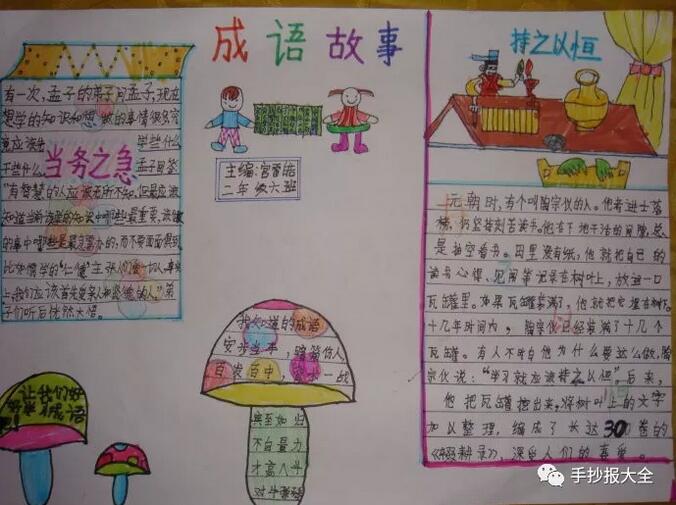 成语故事
有一次,孟子的弟子问孟子,现在
想学的知识和想做的事情很多究
竟应该先
学些什么
干些什么
孟子回答
当务之急
"有智慧的人应该无所不知,但是应该
知道当前该学的知识中哪些最重要,该做
的事中哪些是最先要办的,而不要面面俱到
主编:宫
二年级六班
我知道的成语
安步当车
百发百中
一战
宾至如归
不自量力
才高八斗
让我们好
好学习成语
吧!
持之以恒
元朝时,有个叫陶宗仪的人。他考进士落
榜,仍坚持刻苦读书。他在下地干活的间隙,总
是抽空看书。田里没有纸,他就把自己的
读书心得、见闻等记录在树叶上,放进一口
瓦罐里。如果瓦罐装满了,他就把它埋在树下。
十几年时间内,陶宗仪已经装满了十几个
瓦罐。有人不明白他为什么要这么做,陶
宗仪说:"学习就应该持之以恒"后来,
他把瓦罐挖出来,将树叶上的文字
加以整理,编成了长达30卷的
《辍耕录》,深受人们的喜爱。
手抄报大全